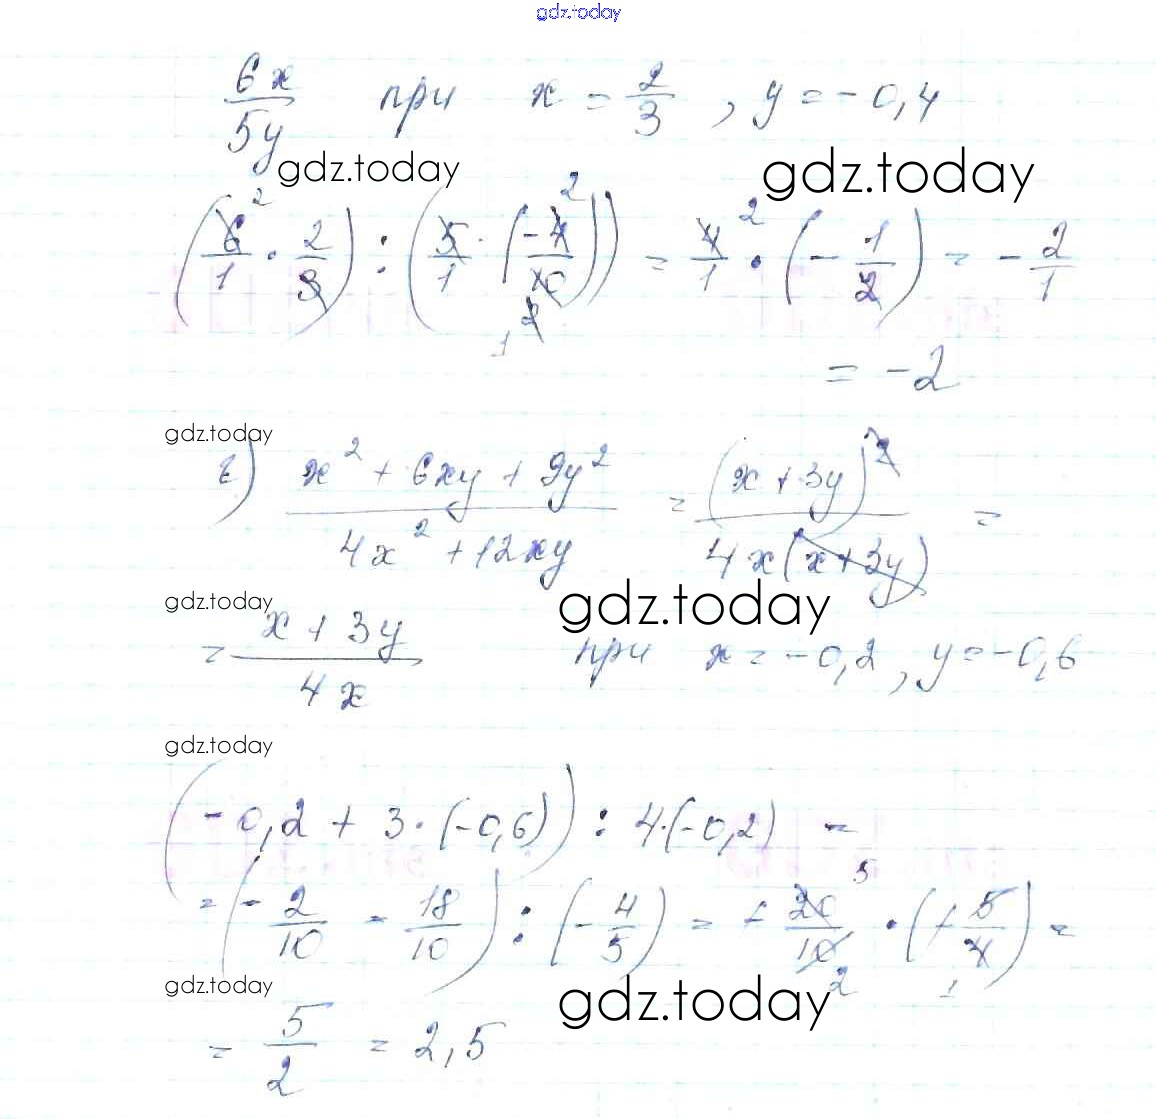 gdz.today
6x/5y при x = 2/3, y = -0,4
gdz.today gdz.today
(6/1 · 2/3) : (5/1 · (-4/10)) = 4/1 · (-1/2) = -2/1
= -2
gdz.today
г) (x² + 6xy + 9y²)/(4x² + 12xy) = (x + 3y)²/(4x(x + 3y)) =
gdz.today gdz.today
= (x + 3y)/(4x) при x = -0,2, y = -0,6
gdz.today
(-0,2 + 3·(-0,6)) : 4·(-0,2) =
= (-2/10 - 18/10) : (-4/5) = +20/10 · (+5/4) =
gdz.today gdz.today
= 5/2 = 2,5